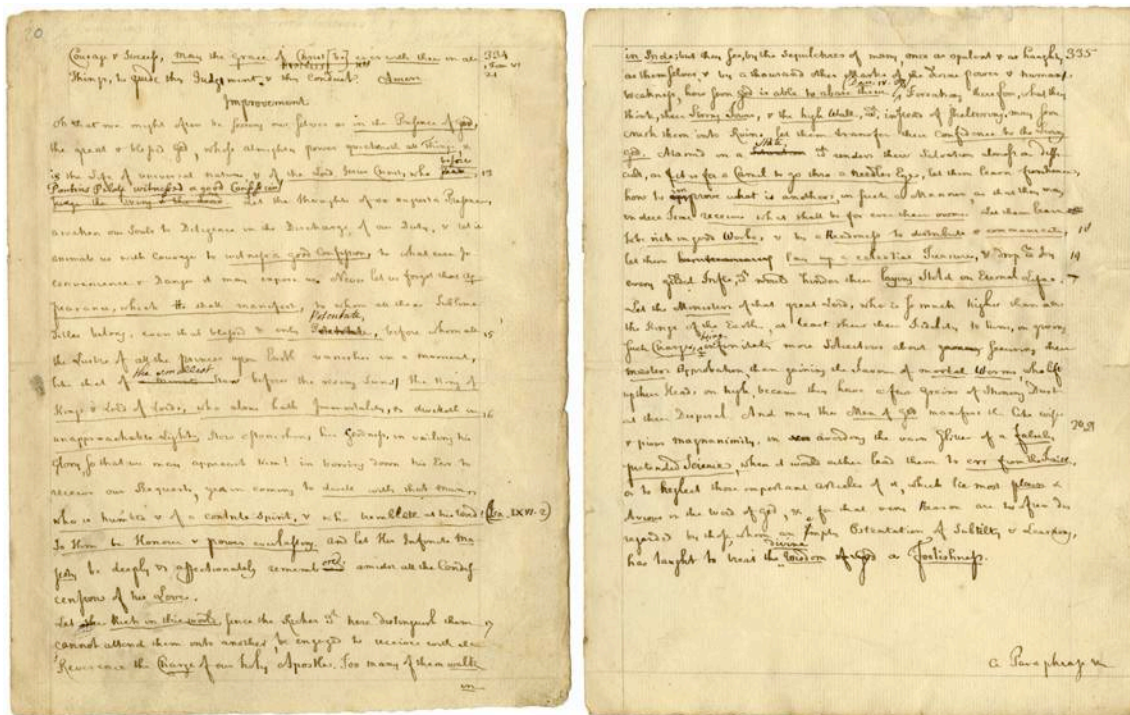 20
Courage & Success, may the grace of Christ [be] ever with them in all 334
Things, to guide thy Judgment, & thy Conduct. Amen 1 Tim VI 21
Improvement
Oh that we might often be seeing our selves as in the Presence of God,
the great & blessed God, whose almighty power quickneth all Things, &
is the Life of universal nature, & of the Lord Jesus Christ, who before 13
Pontius Pilate witnessed a good Confession
Let the thoughts of so august a Presence,
awaken our Souls to Diligence in the Discharge of our Duty, & let it
animate us with Courage to witness a good Confession, to what ever In
convenience & Danger it may expose us. Never let us forget that Ap
pearance, which He shall manifest, to whom all these Sublime
Titles belong, even that blessed & only Potentate, before whom all 15
the Lustre of all the princes upon Earth vanishes in a moment,
like that of the smallest Star before the rising Sun! The King of
Kings & Lord of Lords, who alone hath Immortality, & dwelleth in 16
unapproachable Light, How astonishing his Goodness, in vailing his
Glory so that we may approach him! in bowing down his Ear to
receive our Requests, yea in coming to dwell with that man,
who is humble & of a contrite spirit, & who trembleth at his word! (Isa. LXVI. 2)
To Him be Honour & power everlasting. and let His Infinite Ma
jesty be deeply & affectionately remembred amidst all the Condes
censions of his Love.
Let the Rich in this world since the Riches yt here distinguish them 17
cannot attend them into another, be engaged to receive with all
Reverence the Charge of our holy Apostles. Too many of them walk
in
in Pride; but they see, by the Sepultures of many, once as opulent & as haughty 335
as themselves, & by a thousand other Marks of the Divine power & human
weakness, how soon God is able to abase them (Dan. IV. 37) Forsaking therefore, what they
think, their Strong Tower, & the high Wall, yt, instead of Sheltering, may soon
crush them into Ruine let them transfer their Confidence to the living
God. Placed in a State yt renders their Salvation almost as diffi
cult, as it is for a Camel to go thro a Needles Eye, let them learn from hence
how to improve what is anothers, in such a Manner, as that they may
in due Time receive what shall be for ever their owne. Let them learn
to be rich in good Works, & by a Readiness to distribute & communicate, 18
let them lay up a celestial Treasure, & drop wth Joy 19
every gilded Trifle, yt would hinder their laying Hold on Eternal Life.
Let the Ministers of that great Lord, who is so much higher than all
the Kings of the Earth, at least shew their Fidelity to him, in giving
such Charges, being infinitely more solicitous about securing their
masters Approbation than gaining the Favour of mortal Worms, who lift
up their Heads on high, because they have a few grains of Shining Dust
at their Disposal. And may these Men of God manifest the like wise
& pious magnanimity, in avoiding the vain Glitter of a falsely 20, 21
pretended Science, when it would either lead them to err from the Faith,
or to neglect those important articles of it, which lie most plain &
obvious in the word of God, & for that very Reason are too often dis
regarded by those, whom an empty Ostentation of Subtilty & Learning,
has taught to treat the divine Wisdom as Foolishness.
a Paraphrase &c